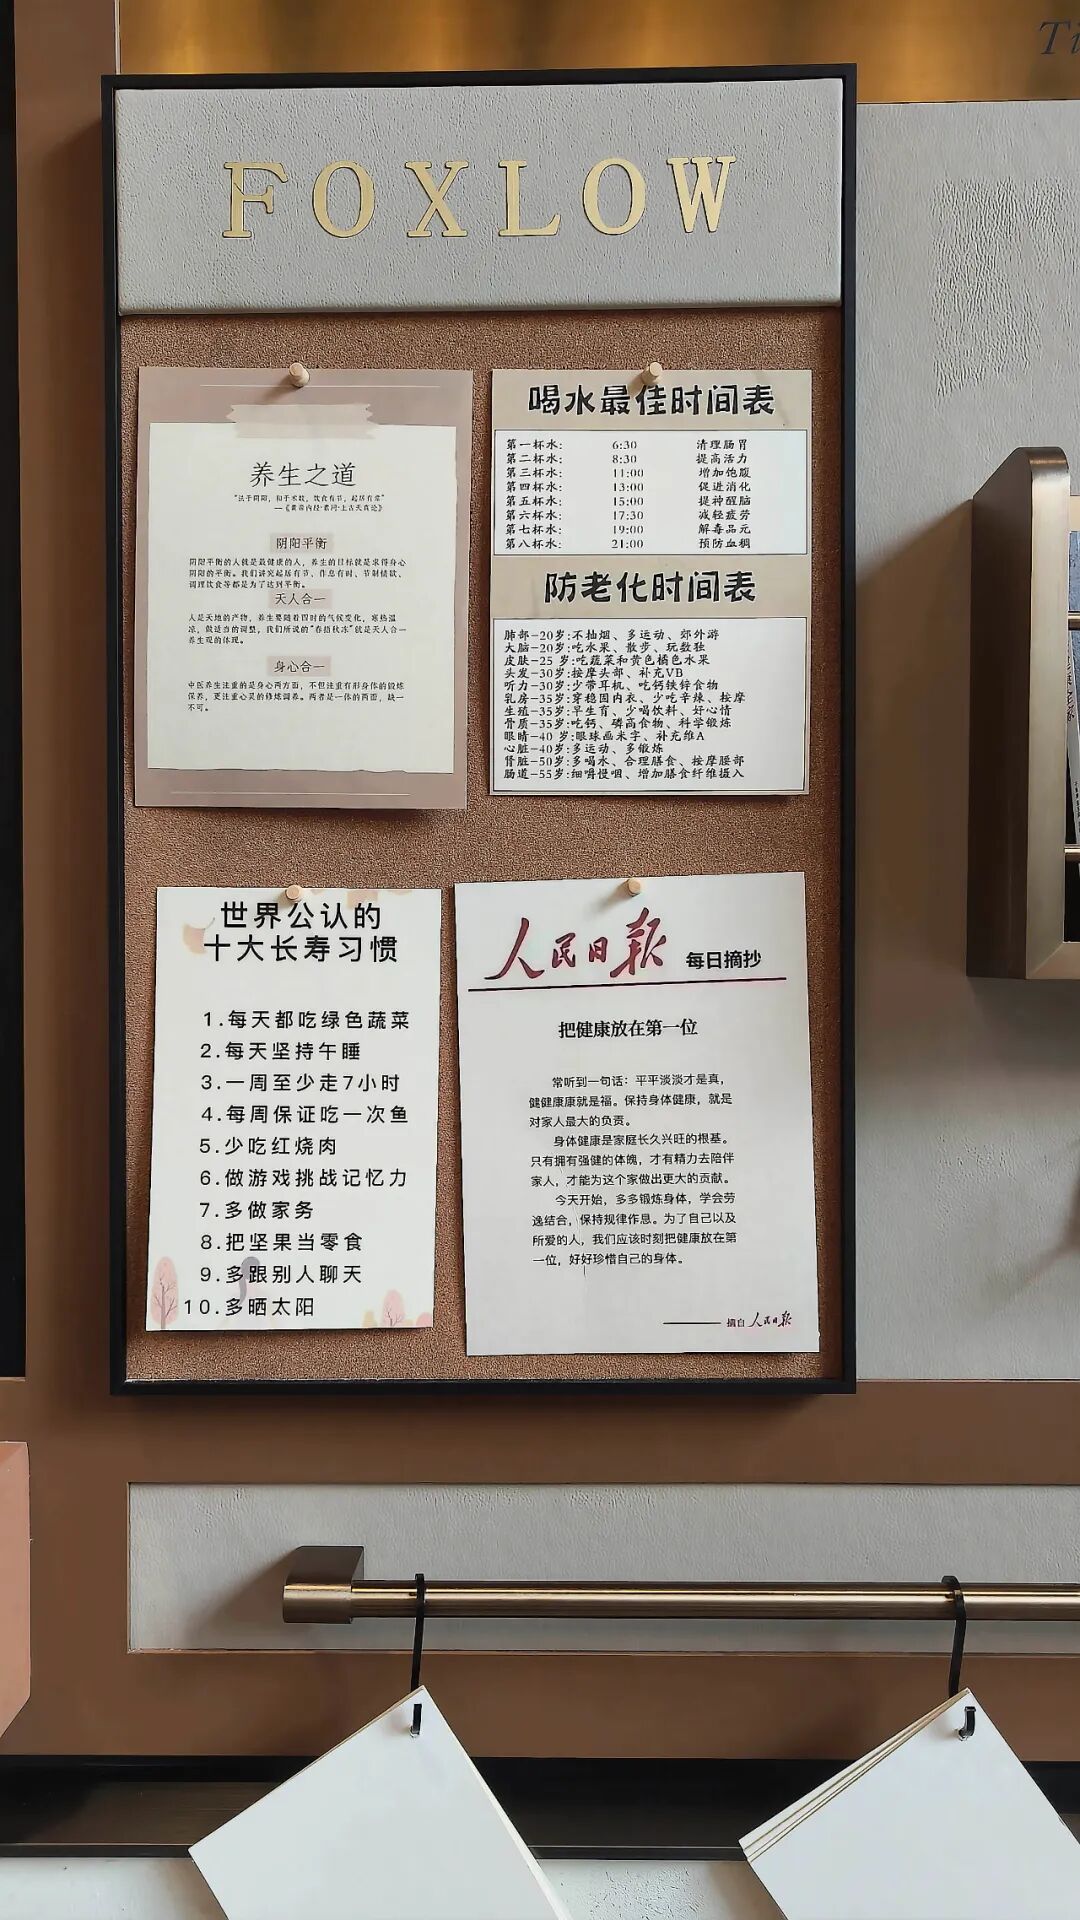 Ti
FOXLOW
养生之道
“法于阴阳，和于术数，饮食有节，起居有常”
—《黄帝内经·素问·上古天真论》
阴阳平衡
阴阳平衡的人就是最健康的人，养生的目标就是求得身心
阴阳的平衡。我们讲究起居有节、作息有时、节制情欲、
调理饮食等都是为了达到平衡。
天人合一
人是天地的产物，养生要随着四时的气候变化，寒热温
凉，做适当的调整，我们所说的“春捂秋冻”就是天人合一
养生观的体现。
身心合一
中医养生注重的是身心两方面，不但注重有形身体的锻炼
保养，更注重心灵的修炼调养。两者是一体的两面，缺一
不可。
喝水最佳时间表
第一杯水: 6:30 清理肠胃
第二杯水: 8:30 提高活力
第三杯水: 11:00 增加饱腹
第四杯水: 13:00 促进消化
第五杯水: 15:00 提神醒脑
第六杯水: 17:30 减轻疲劳
第七杯水: 19:00 解毒品元
第八杯水: 21:00 预防血稠
防老化时间表
肺部-20岁:不抽烟、多运动、郊外游
大脑-20岁:吃水果、散步、玩数独
皮肤-25 岁:吃蔬菜和黄色橘色水果
头发-30岁:按摩头部、补充VB
听力-30岁:少带耳机、吃钙铁锌食物
乳房-35岁:穿稳固内衣、少吃辛辣、按摩
生殖-35岁:早生育、少喝饮料、好心情
骨质-35岁:吃钙、磷高食物、科学锻炼
眼睛-40 岁:眼球画米字、补充维A
心脏-40岁:多运动、多锻炼
肾脏-50岁:多喝水、合理膳食、按摩腰部
肠道-55岁:细嚼慢咽、增加膳食纤维摄入
世界公认的
十大长寿习惯
1.每天都吃绿色蔬菜
2.每天坚持午睡
3.一周至少走7小时
4.每周保证吃一次鱼
5.少吃红烧肉
6.做游戏挑战记忆力
7.多做家务
8.把坚果当零食
9.多跟别人聊天
10.多晒太阳
人民日报 每日摘抄
把健康放在第一位
常听到一句话：平平淡淡才是真，
健健康康就是福。保持身体健康，就是
对家人最大的负责。
身体健康是家庭长久兴旺的根基。
只有拥有强健的体魄，才有精力去陪伴
家人，才能为这个家做出更大的贡献。
今天开始，多多锻炼身体，学会劳
逸结合，保持规律作息。为了自己以及
所爱的人，我们应该时刻把健康放在第
一位，好好珍惜自己的身体。
摘自 人民日报